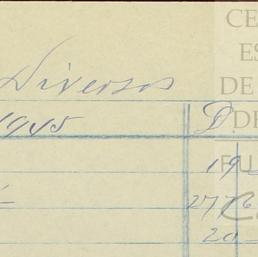 CE
ES
Diversos
DE
1945 D. DE
19
FU
2776
20